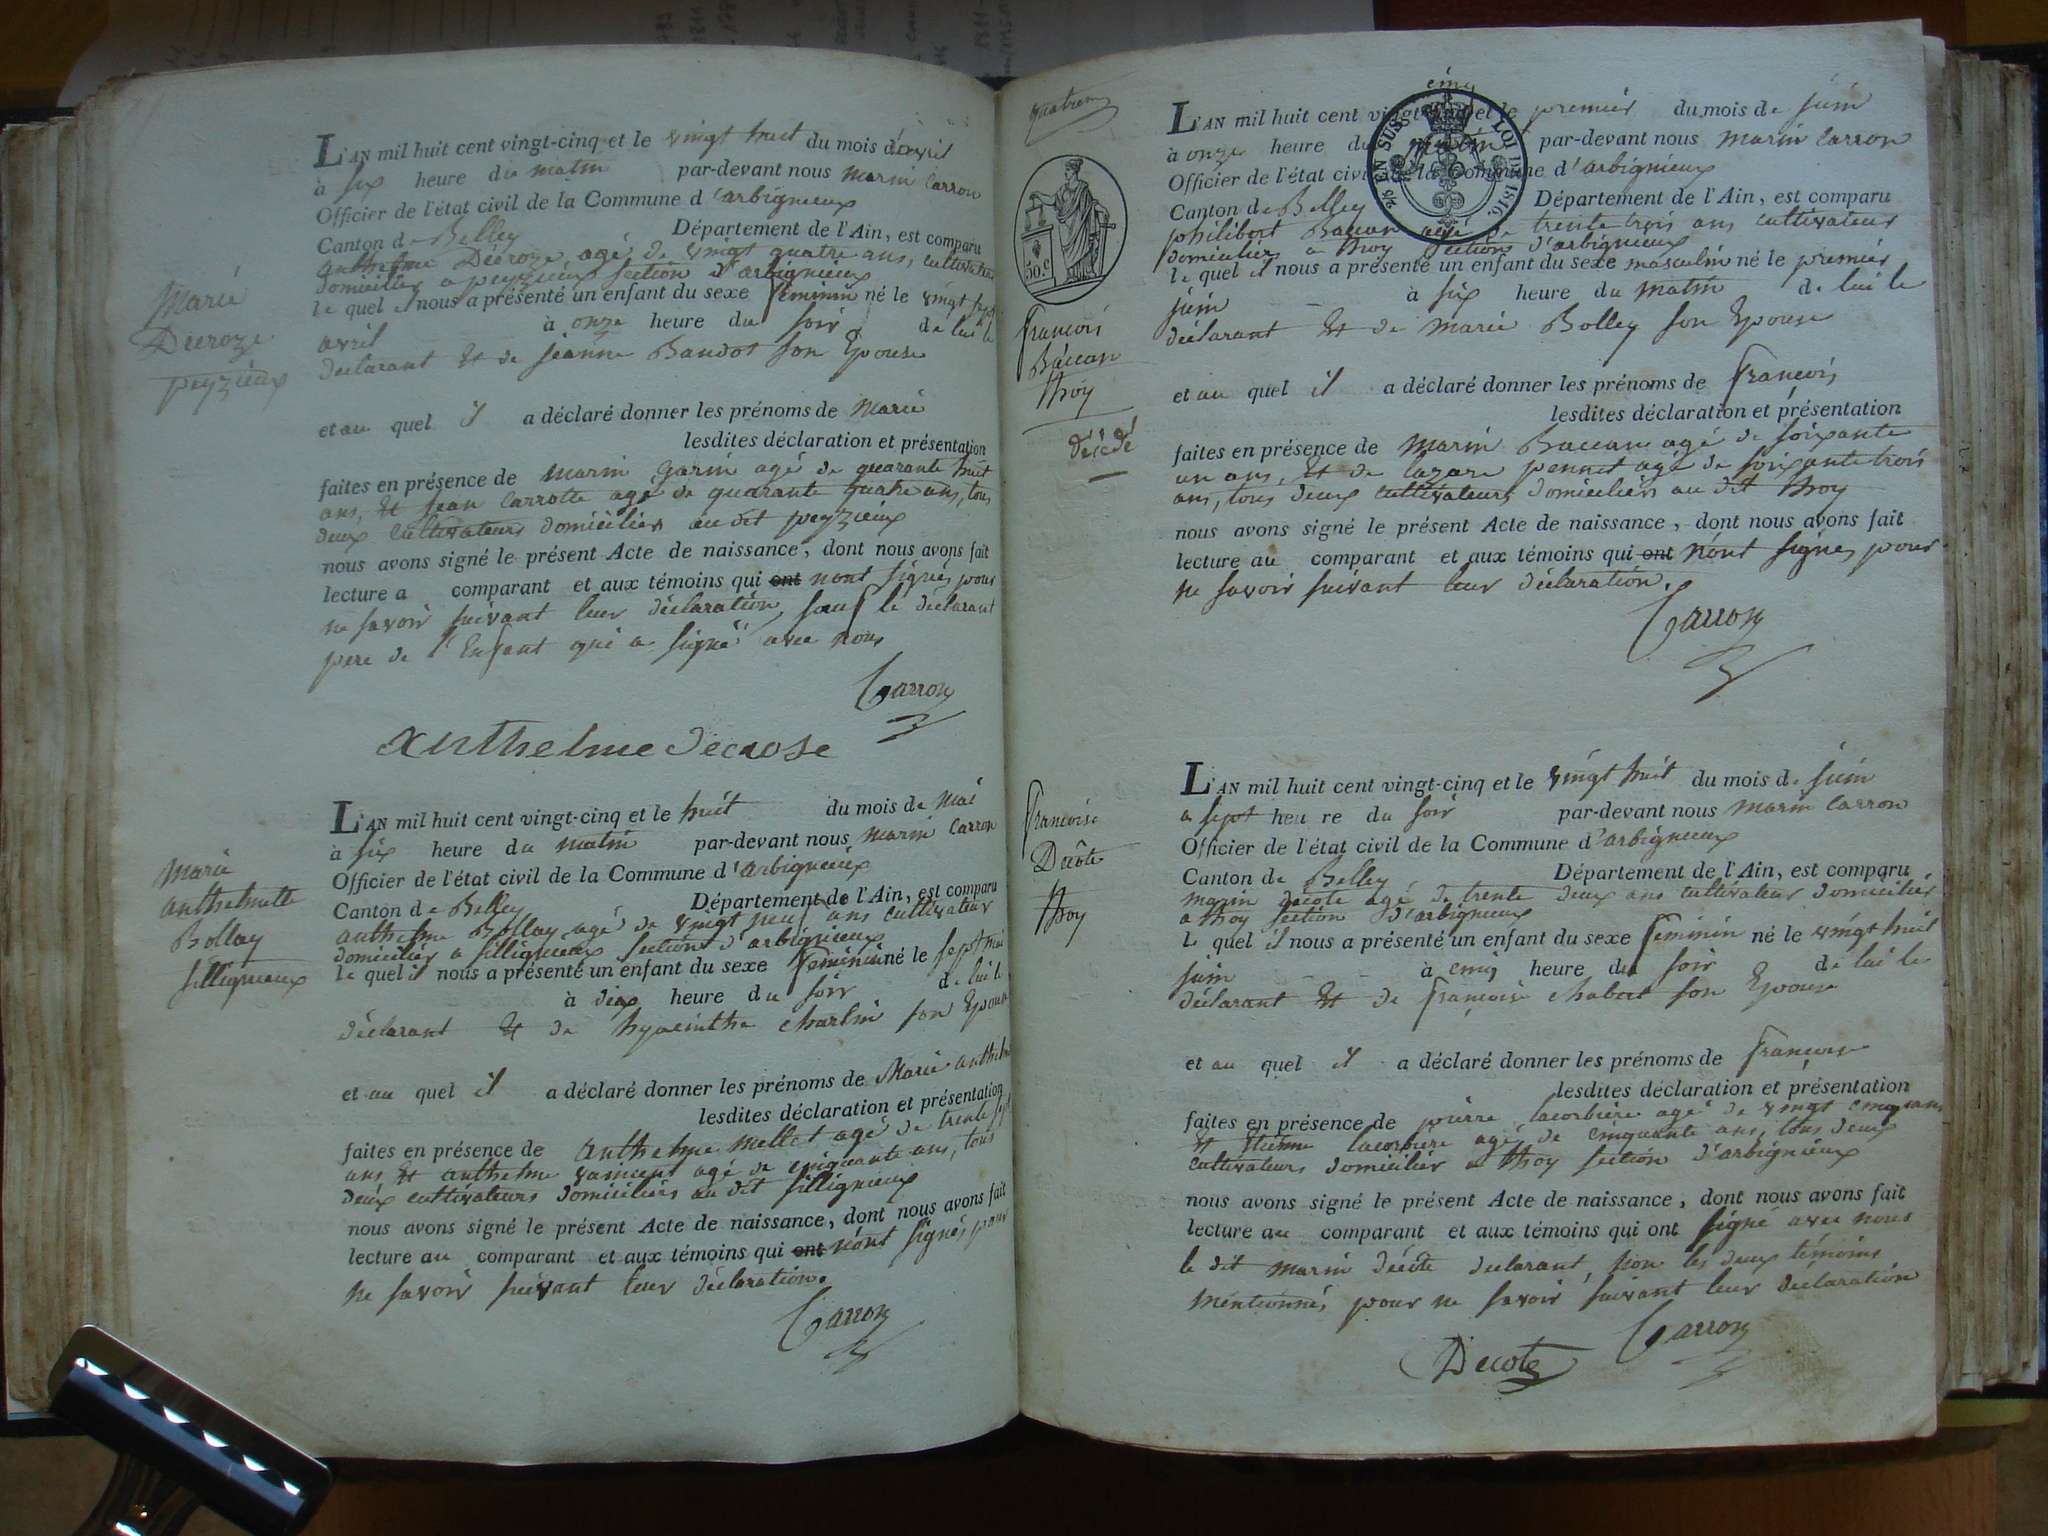 Marie
Decroze
peyzieux
L'AN mil huit cent vingt-cinq et le vingt huit du mois d'avril
à six heure du matin par-devant nous marin Carron
Officier de l'état civil de la Commune d'arbignieux
Canton de Belley Département de l'Ain, est comparu
anthelme Decroze, agé de vingt quatre ans, cultivateur
domicilié a peyzieux section d'arbignieux
le quel il nous a présenté un enfant du sexe feminin né le vingt sept
avril à onze heure du soir de lui le
déclarant et de jeanne Baudot son Epouse
et au quel il a déclaré donner les prénoms de Marie
lesdites déclaration et présentation
faites en présence de marin garin agé de quarante huit
ans, et jean Carrotte agé de quarante quatre ans, tous
deux cultivateurs domiciliés au dit peyzieux
nous avons signé le présent Acte de naissance, dont nous avons fait
lecture a comparant et aux témoins qui ont n'ont signés pour
ne savoir suivant leur déclaration, sauf le déclarant
pere de l'Enfant qui a signé avec nous
Carron
Anthelme decrose
Marie
anthelmette
Bollay
silligneux
L'AN mil huit cent vingt-cinq et le huit du mois de mai
à six heure du matin par-devant nous marin Carron
Officier de l'état civil de la Commune d'arbignieux
Canton de Belley Département de l'Ain, est comparu
anthelme Bollay agé de vingt neuf ans cultivateur
domicilié a silligneux section d'arbignieux
le quel il nous a présenté un enfant du sexe feminin né le sept mai
à dix heure du soir de lui le
déclarant et de hyacinthe charlin son Epouse
et au quel il a déclaré donner les prénoms de Marie
lesdites déclaration et présentation
faites en présence de anthelme mellet agé de trente sept
ans, et anthelme vaincent agé de cinquante ans, tous
deux cultivateurs domiciliés au dit silligneux
nous avons signé le présent Acte de naissance, dont nous avons fait
lecture au comparant et aux témoins qui ont n'ont signés pour
ne savoir suivant leur déclaration.
Carron
50.c
françois
Baccan
thoy
décédé
EN SUS LOI DE 1816.
cinq
L'AN mil huit cent vingt et le premier du mois de juin
à onze heure du matin par-devant nous marin Carron
Officier de l'état civil de la Commune d'arbignieux
Canton de Belley Département de l'Ain, est comparu
philibert Baccan agé de trente trois ans cultivateur
domicilié a thoy section d'arbignieux
le quel il nous a présenté un enfant du sexe masculin né le premier
juin à six heure du matin de lui le
déclarant et de marie Bolley son Epouse
et au quel il a déclaré donner les prénoms de françois
lesdites déclaration et présentation
faites en présence de marin Baccan agé de soixante
un ans, et de lazare pennet agé de soixante trois
ans, tous deux cultivateurs domiciliés au dit thoy
nous avons signé le présent Acte de naissance, dont nous avons fait
lecture au comparant et aux témoins qui ont n'ont signés pour
ne savoir suivant leur déclaration.
Carron
françoise
Decôte
thoy
L'AN mil huit cent vingt-cinq et le vingt huit du mois de juin
a sept heure du soir par-devant nous marin Carron
Officier de l'état civil de la Commune d'arbignieux
Canton de Belley Département de l'Ain, est comparu
marin decote agé de trente deux ans cultivateur domicilié
a thoy section d'arbignieux
le quel il nous a présenté un enfant du sexe feminin né le vingt huit
juin à cinq heure du soir de lui le
déclarant et de françoise chabert son Epouse
et au quel il a déclaré donner les prénoms de françoise
lesdites déclaration et présentation
faites en présence de pierre lacorbiere agé de vingt cinq ans
et Etienne lacorbiere agé de cinquante ans, tous deux
cultivateurs domiciliés a thoy section d'arbignieux
nous avons signé le présent Acte de naissance, dont nous avons fait
lecture au comparant et aux témoins qui ont signé avec nous
le dit marin decote declarant, non les deux témoins
mentionnés, pour ne savoir suivant leur déclaration
Carron
Decote